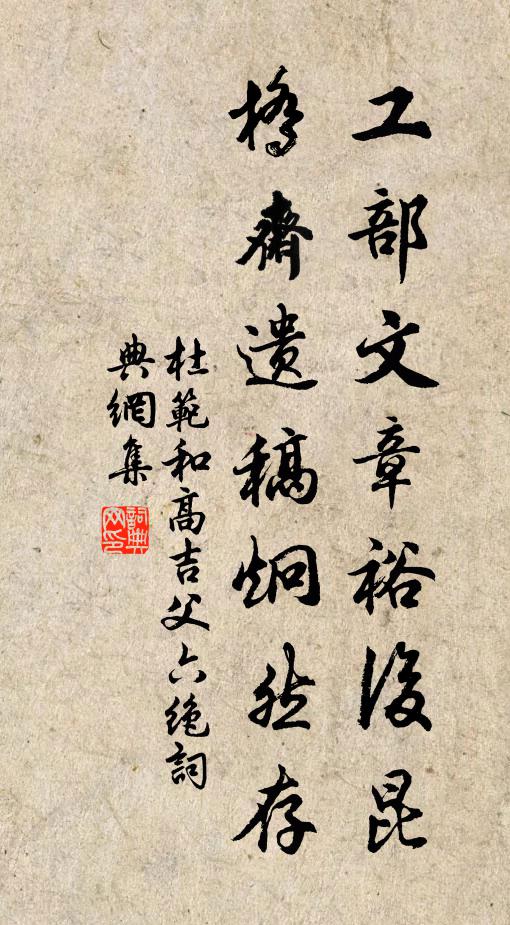 工部文章裕後昆
橋齋遺稿炯然存
杜範和高吉父六絶詞
典網集
詞典
网印